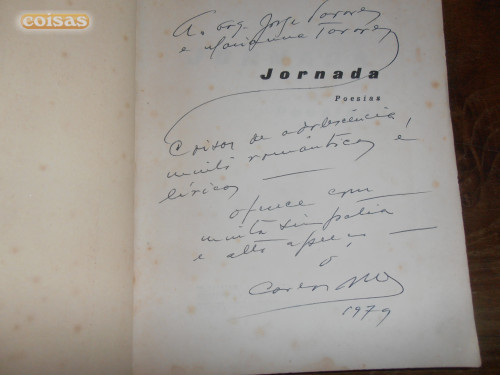 coisas
A. Eng. Jorge Tavares
e Tavares
Jornada
Poesias
Coisas de adolescência,
muito românticas e
líricas
oferece com
muita simpatia
e alto apreço,
o
Carlos
1979